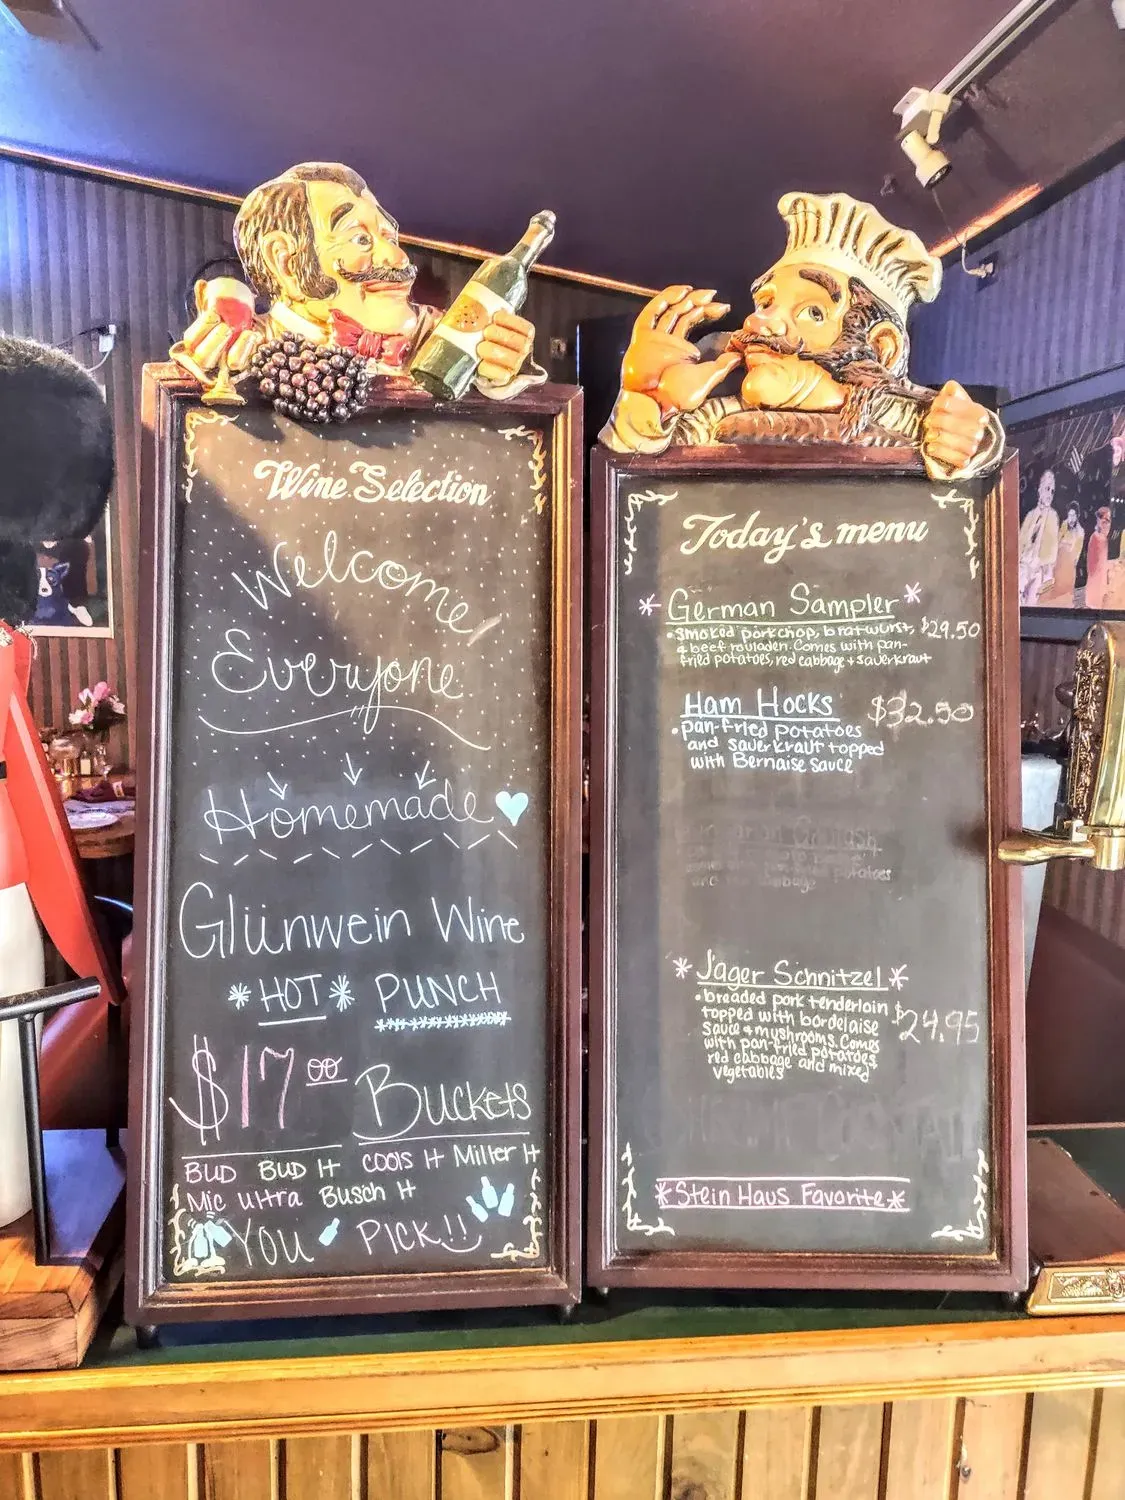 Wine Selection
Welcome!
Everyone
Homemade
Glünwein Wine
*HOT* PUNCH
$17.00 Buckets
BUD BUD lt COOlS lt Miller lt
Mic ultra Busch lt
YOU PICK!!
Today's menu
* German Sampler *
• smoked porkchop, bratwurst, $29.50
& beef rouladen. Comes with pan-
fried potatoes, red cabbage + sauerkraut
Ham Hocks $32.50
• pan-fried potatoes
and sauerkraut topped
with Bernaise sauce
potatoes
and cabbage
* Jager Schnitzel *
• breaded pork tenderloin $24.95
topped with bordelaise
sauce & mushrooms. Comes
with pan-fried potatoes,
red cabbage and mixed
vegetables
*Stein Haus Favorite*